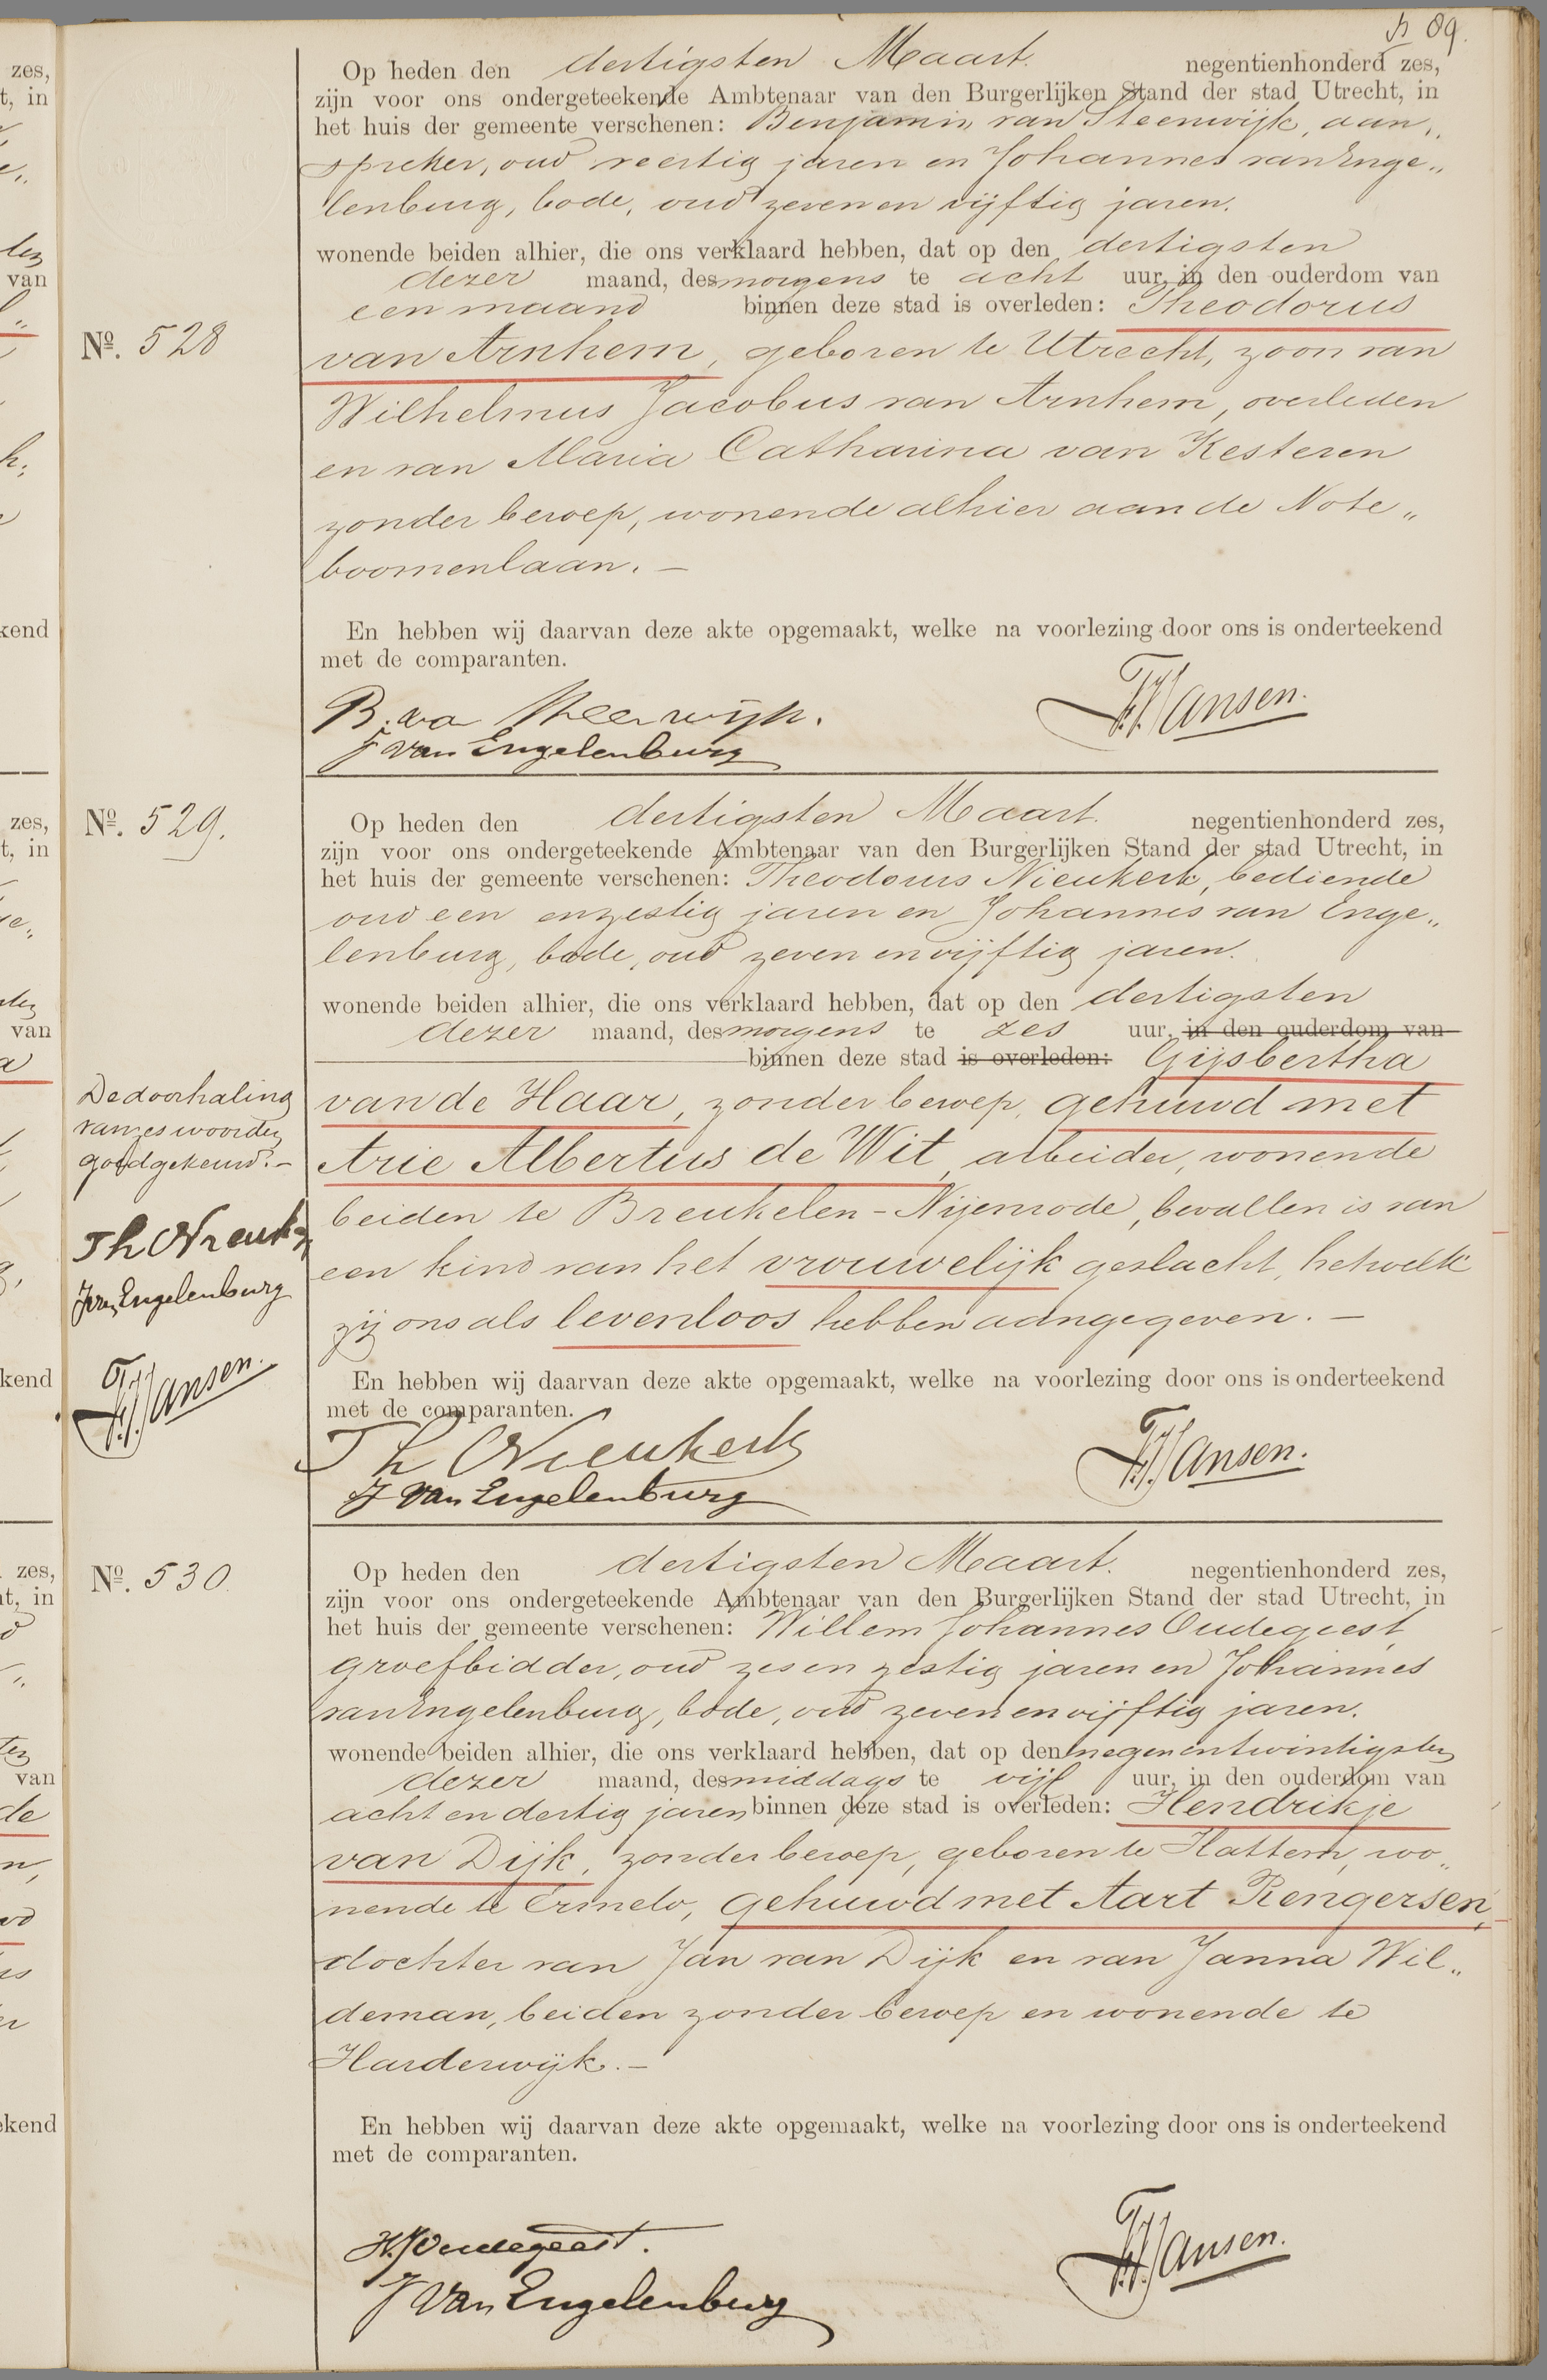 89.
Op heden den dertigsten Maart. negentienhonderd zes,
zijn voor ons ondergeteekende Ambtenaar van den Burgerlijken Stand der stad Utrecht, in
het huis der gemeente verschenen: Benjamin van Steenwijk, aan„
spreker, oud veertig jaren en Johannes van Enge„
lenburg, bode, oud zeven en vijftig jaren.
wonende beiden alhier, die ons verklaard hebben, dat op den dertigsten
dezer maand, des morgens te acht uur, in den ouderdom van
een maand binnen deze stad is overleden: Theodorus
Nº. 528
van Arnhem, geboren te Utrecht, zoon van
Wilhelmus Jacobus van Arnhem, overleden
en van Maria Catharina van Kesteren
zonder beroep, wonende alhier aan de Note„
boomenlaan. —
En hebben wij daarvan deze akte opgemaakt, welke na voorlezing door ons is onderteekend
met de comparanten.
B. va Steenwijk.
J van Engelenburg
Jansen.
Nº. 529.
Op heden den dertigsten Maart. negentienhonderd zes,
zijn voor ons ondergeteekende Ambtenaar van den Burgerlijken Stand der stad Utrecht, in
het huis der gemeente verschenen: Theodorus Nieukerk, bediende
oud een en zestig jaren en Johannes van Enge„
lenburg, bode, oud zeven en vijftig jaren.
wonende beiden alhier, die ons verklaard hebben, dat op den dertigsten
dezer maand, des morgens te zes uur, in den ouderdom van
binnen deze stad is overleden: Gijsbertha
van de Haar, zonder beroep, gehuwd met
Arie Albertus de Wit, arbeider, wonende
beiden te Breukelen-Nijenrode, bevallen is van
een kind van het vrouwelijk geslacht, hetwelk
zij ons als levenloos hebben aangegeven. —
De doorhaling
van zes woorden
goedgekeurd. —
Th Nieuk
J van Engelenburg
Jansen.
En hebben wij daarvan deze akte opgemaakt, welke na voorlezing door ons is onderteekend
met de comparanten.
Th Nieukerk
J van Engelenburg
Jansen.
Nº. 530.
Op heden den dertigsten Maart. negentienhonderd zes,
zijn voor ons ondergeteekende Ambtenaar van den Burgerlijken Stand der stad Utrecht, in
het huis der gemeente verschenen: Willem Johannes Oudegeest,
groefbidder, oud zes en zestig jaren en Johannes
van Engelenburg, bode, oud zeven en vijftig jaren.
wonende beiden alhier, die ons verklaard hebben, dat op den negenentwintigsten
dezer maand, des middags te vijf uur, in den ouderdom van
acht en dertig jaren binnen deze stad is overleden: Hendrikje
van Dijk, zonder beroep, geboren te Hattem, wo„
nende te Ermelo, gehuwd met Aart Rengersen,
dochter van Jan van Dijk en van Janna Wil„
deman, beiden zonder beroep en wonende te
Harderwijk. —
En hebben wij daarvan deze akte opgemaakt, welke na voorlezing door ons is onderteekend
met de comparanten.
W. J Oudegeest.
J van Engelenburg
Jansen.